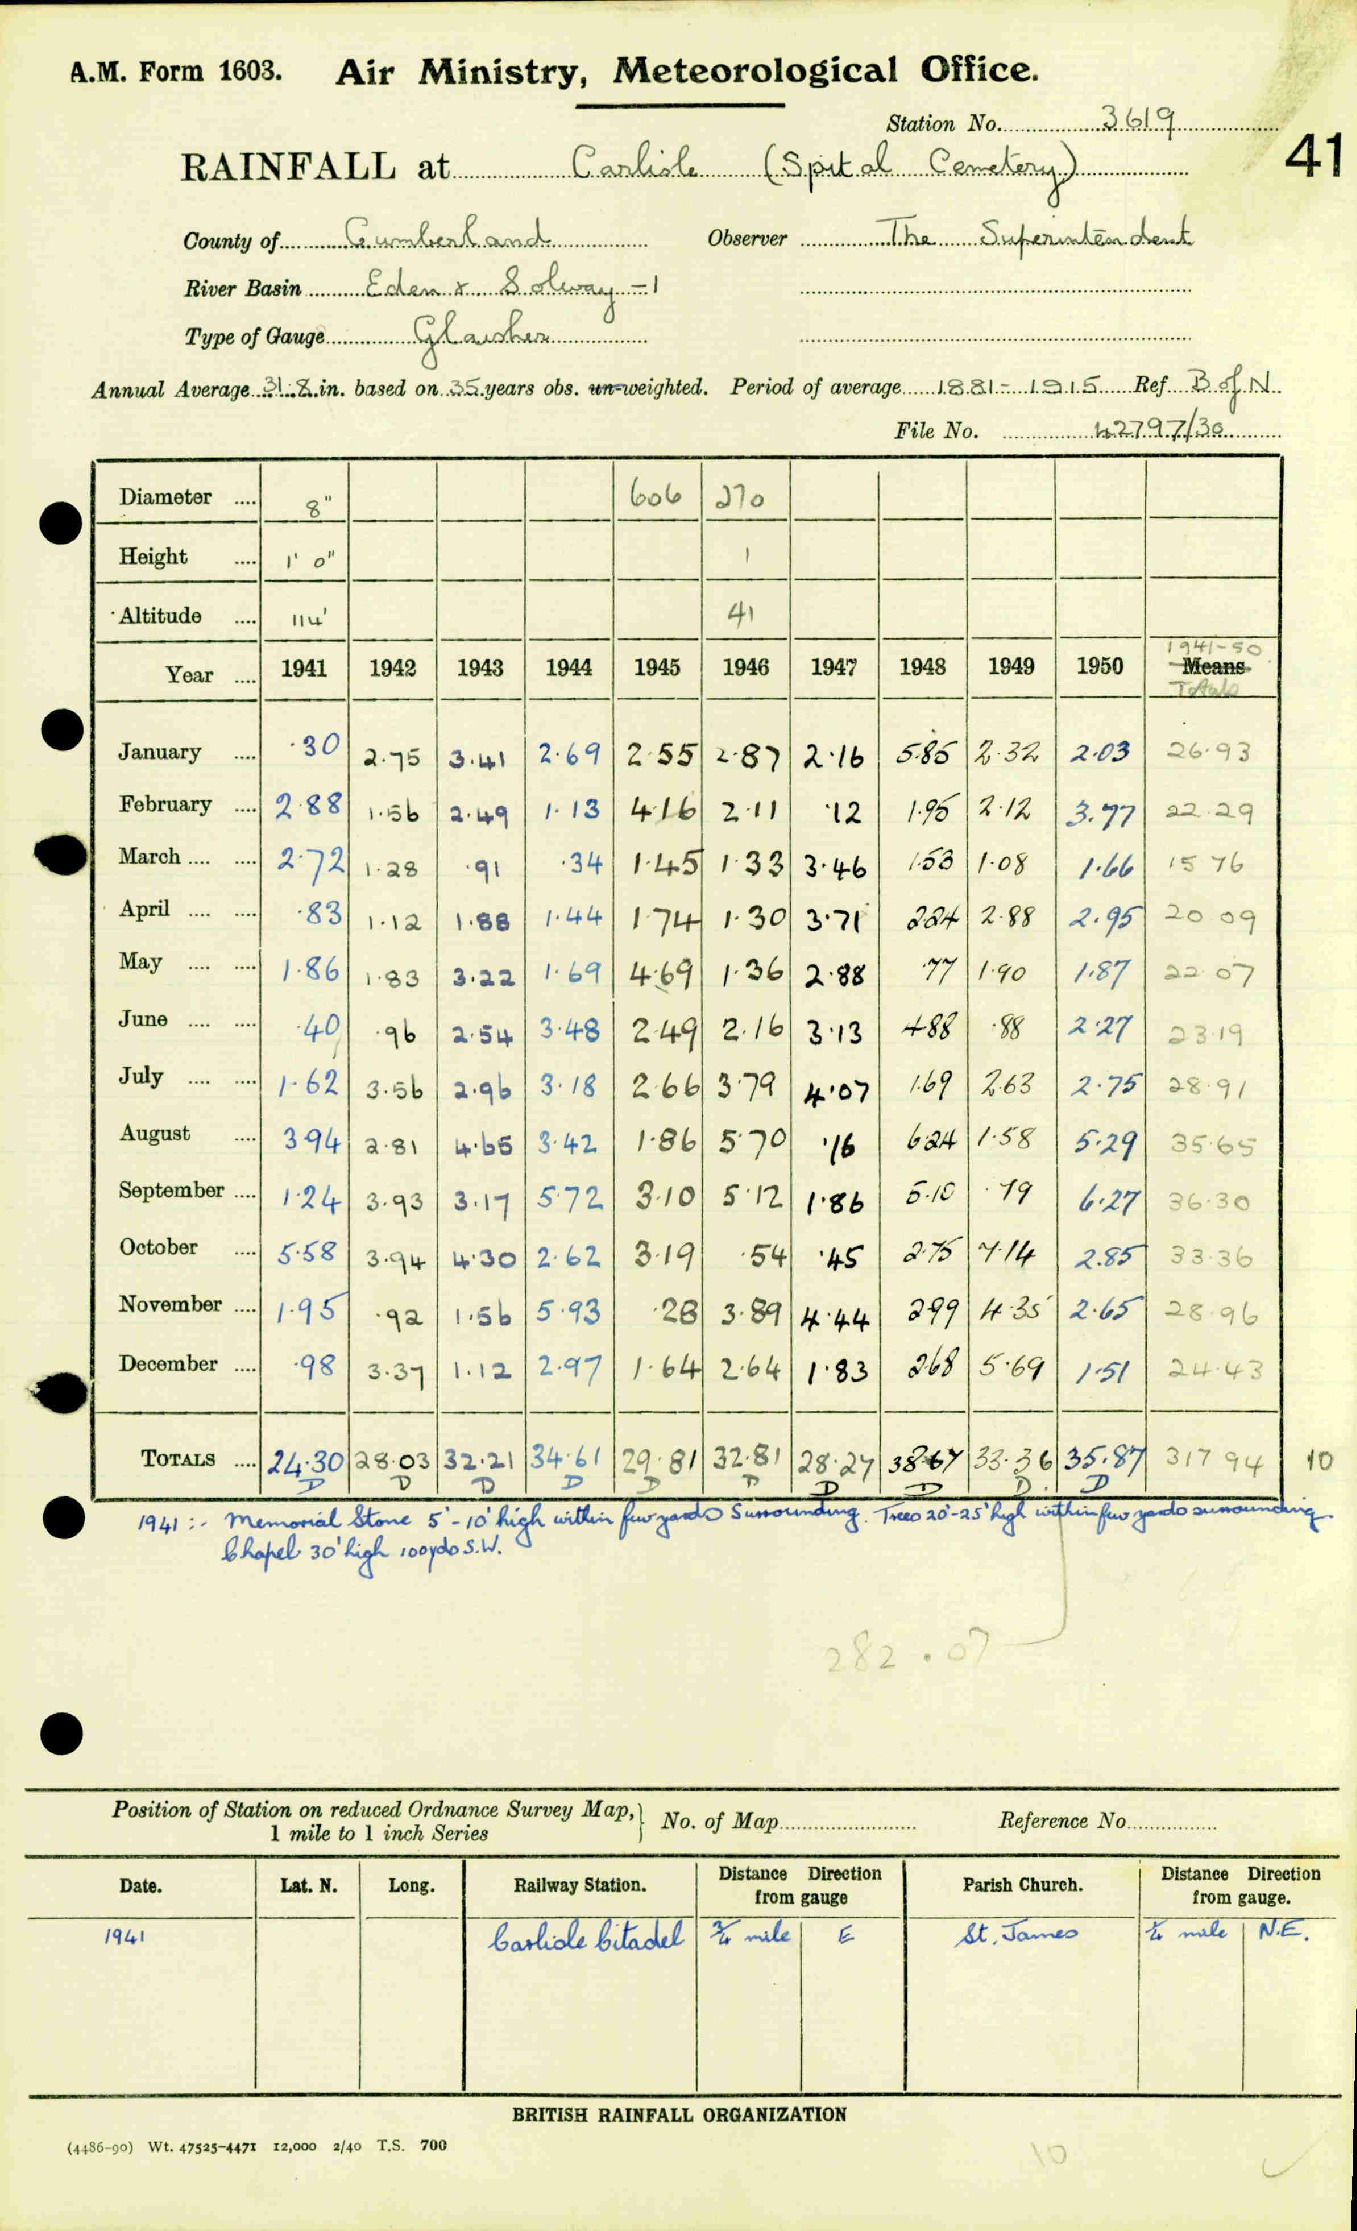 A.M. Form 1603. Air Ministry, Meteorological Office.
Station No. 3619
41
RAINFALL at Carlisle (Spital Cemetery)
County of Cumberland Observer The Superintendent
River Basin Eden & Solway - 1
Type of Gauge Glaisher
Annual Average 31.8 in. based on 35 years obs. un-weighted. Period of average 1881-1915 Ref B of N
File No. 42797/30
Diameter .... 8" 606 270
Height .... 1' 0" 1
Altitude .... 114' 41
1941-50
Year .... 1941 1942 1943 1944 1945 1946 1947 1948 1949 1950 Means
Totals
January .... ·30 2·75 3·41 2·69 2·55 2·87 2·16 5·85 2·32 2·03 26·93
February .... 2·88 1·56 2·49 1·13 4·16 2·11 ·12 1·95 2·12 3·77 22·29
March .... .... 2·72 1·28 ·91 ·34 1·45 1·33 3·46 1·53 1·08 1·66 15 76
April .... .... ·83 1·12 1·88 1·44 1·74 1·30 3·71 2·24 2·88 2·95 20 09
May .... .... 1·86 1·83 3·22 1·69 4·69 1·36 2·88 ·77 1·90 1·87 22·07
June .... .... ·40 ·96 2·54 3·48 2·49 2·16 3·13 4·88 ·88 2·27 23·19
July .... .... 1·62 3·56 2·96 3·18 2·66 3·79 4·07 1·69 2·63 2·75 28·91
August .... 3·94 2·81 4·65 3·42 1·86 5·70 ·16 6·24 1·58 5·29 35·65
September .... 1·24 3·93 3·17 5·72 3·10 5·12 1·86 5·10 ·79 6·27 36·30
October .... 5·58 3·94 4·30 2·62 3·19 ·54 ·45 2·75 7·14 2·85 33·36
November .... 1·95 ·92 1·56 5·93 ·28 3·89 4·44 2·99 4·35 2·65 28·96
December .... ·98 3·37 1·12 2·97 1·64 2·64 1·83 2·68 5·69 1·51 24·43
TOTALS .... 24·30 28·03 32·21 34·61 29·81 32·81 28·27 38·67 33·36 35·87 317 94 10
D D D D D D D D D D
1941 :- Memorial Stone 5'-10' high within few yards surrounding. Trees 20'-25' high within few yards surrounding
Chapel 30' high 100yds S.W.
282.07
Position of Station on reduced Ordnance Survey Map, No. of Map Reference No.
1 mile to 1 inch Series
Date. Lat. N. Long. Railway Station. Distance Direction from gauge Parish Church. Distance Direction from gauge.
1941 Carlisle Citadel ¾ mile E St. James ¼ mile N.E.
BRITISH RAINFALL ORGANIZATION
(4486-90) Wt. 47525-4471 12,000 2/40 T.S. 700
10